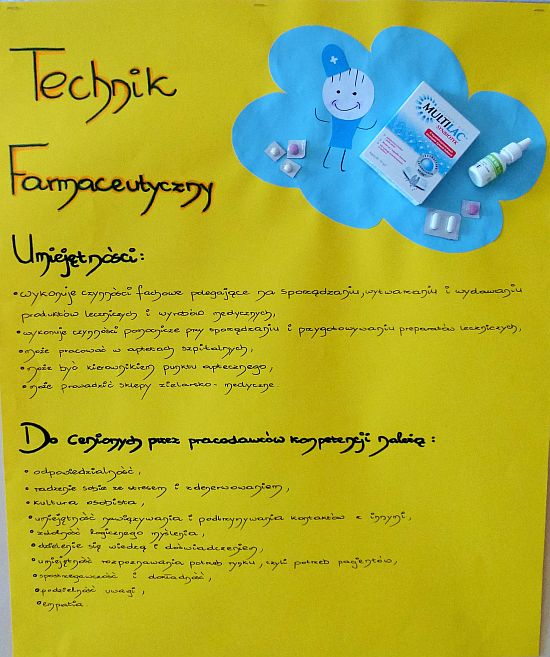 Technik
Farmaceutyczny
MULTILAC
SYNBIOTYK
Umiejętności:
• wykonuje czynności fachowe polegające na sporządzaniu, wytwarzaniu i wydawaniu
produktów leczniczych i wyrobów medycznych,
• wykonuje czynności pomocnicze przy sporządzaniu i przygotowywaniu preparatów leczniczych,
• może pracować w aptekach szpitalnych,
• może być kierownikiem punktu aptecznego,
• może prowadzić sklepy zielarsko-medyczne
Do cenionych przez pracodawców kompetencji należą:
• odpowiedzialność,
• radzenie sobie ze stresem i zdenerwowaniem,
• kultura osobista,
• umiejętność nawiązywania i podtrzymywania kontaktów z innymi,
• zdolność logicznego myślenia,
• dzielenie się wiedzą i doświadczeniem,
• umiejętność rozpoznawania potrzeb rynku, czyli potrzeb pacjentów,
• spostrzegawczość i dokładność,
• podzielność uwagi,
• empatia